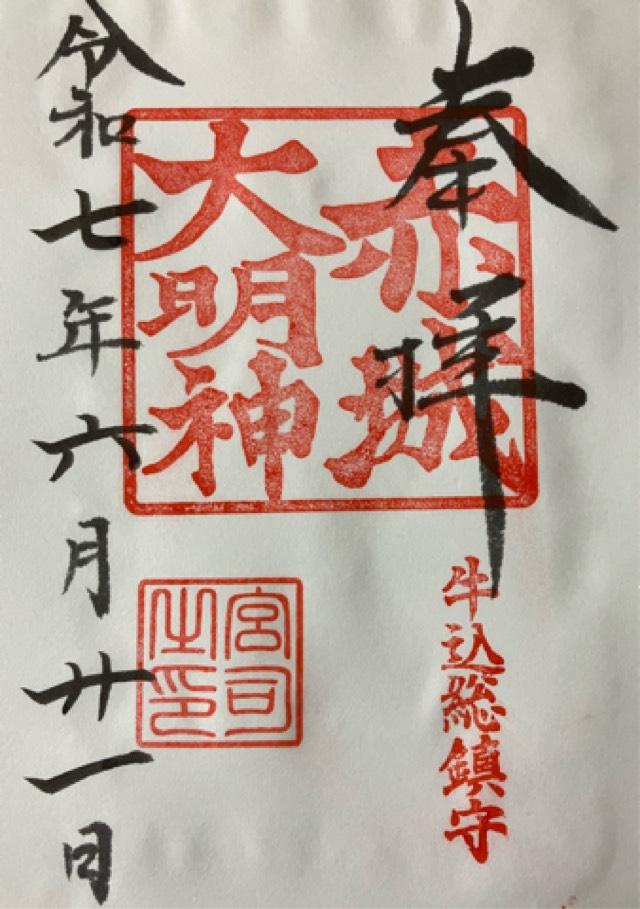 奉拝
牛込総鎮守
赤城
大明神
宮司
之印
令和七年六月廿一日